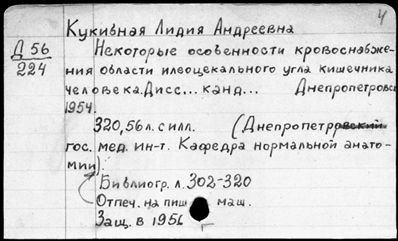 4
Кукивная Лидия Андреевна
Д 56
224
Некоторые особенности кровоснабже-
ния области илеоцекального угла кишечника
человека. Дисс... канд... Днепропетровск
1954.
320,56 л. с илл. (Днепропетровский
гос. мед. ин-т. Кафедра нормальной анато-
мии).
Библиогр. л. 302-320
Отпеч. на пиш маш.
Защ. в 195